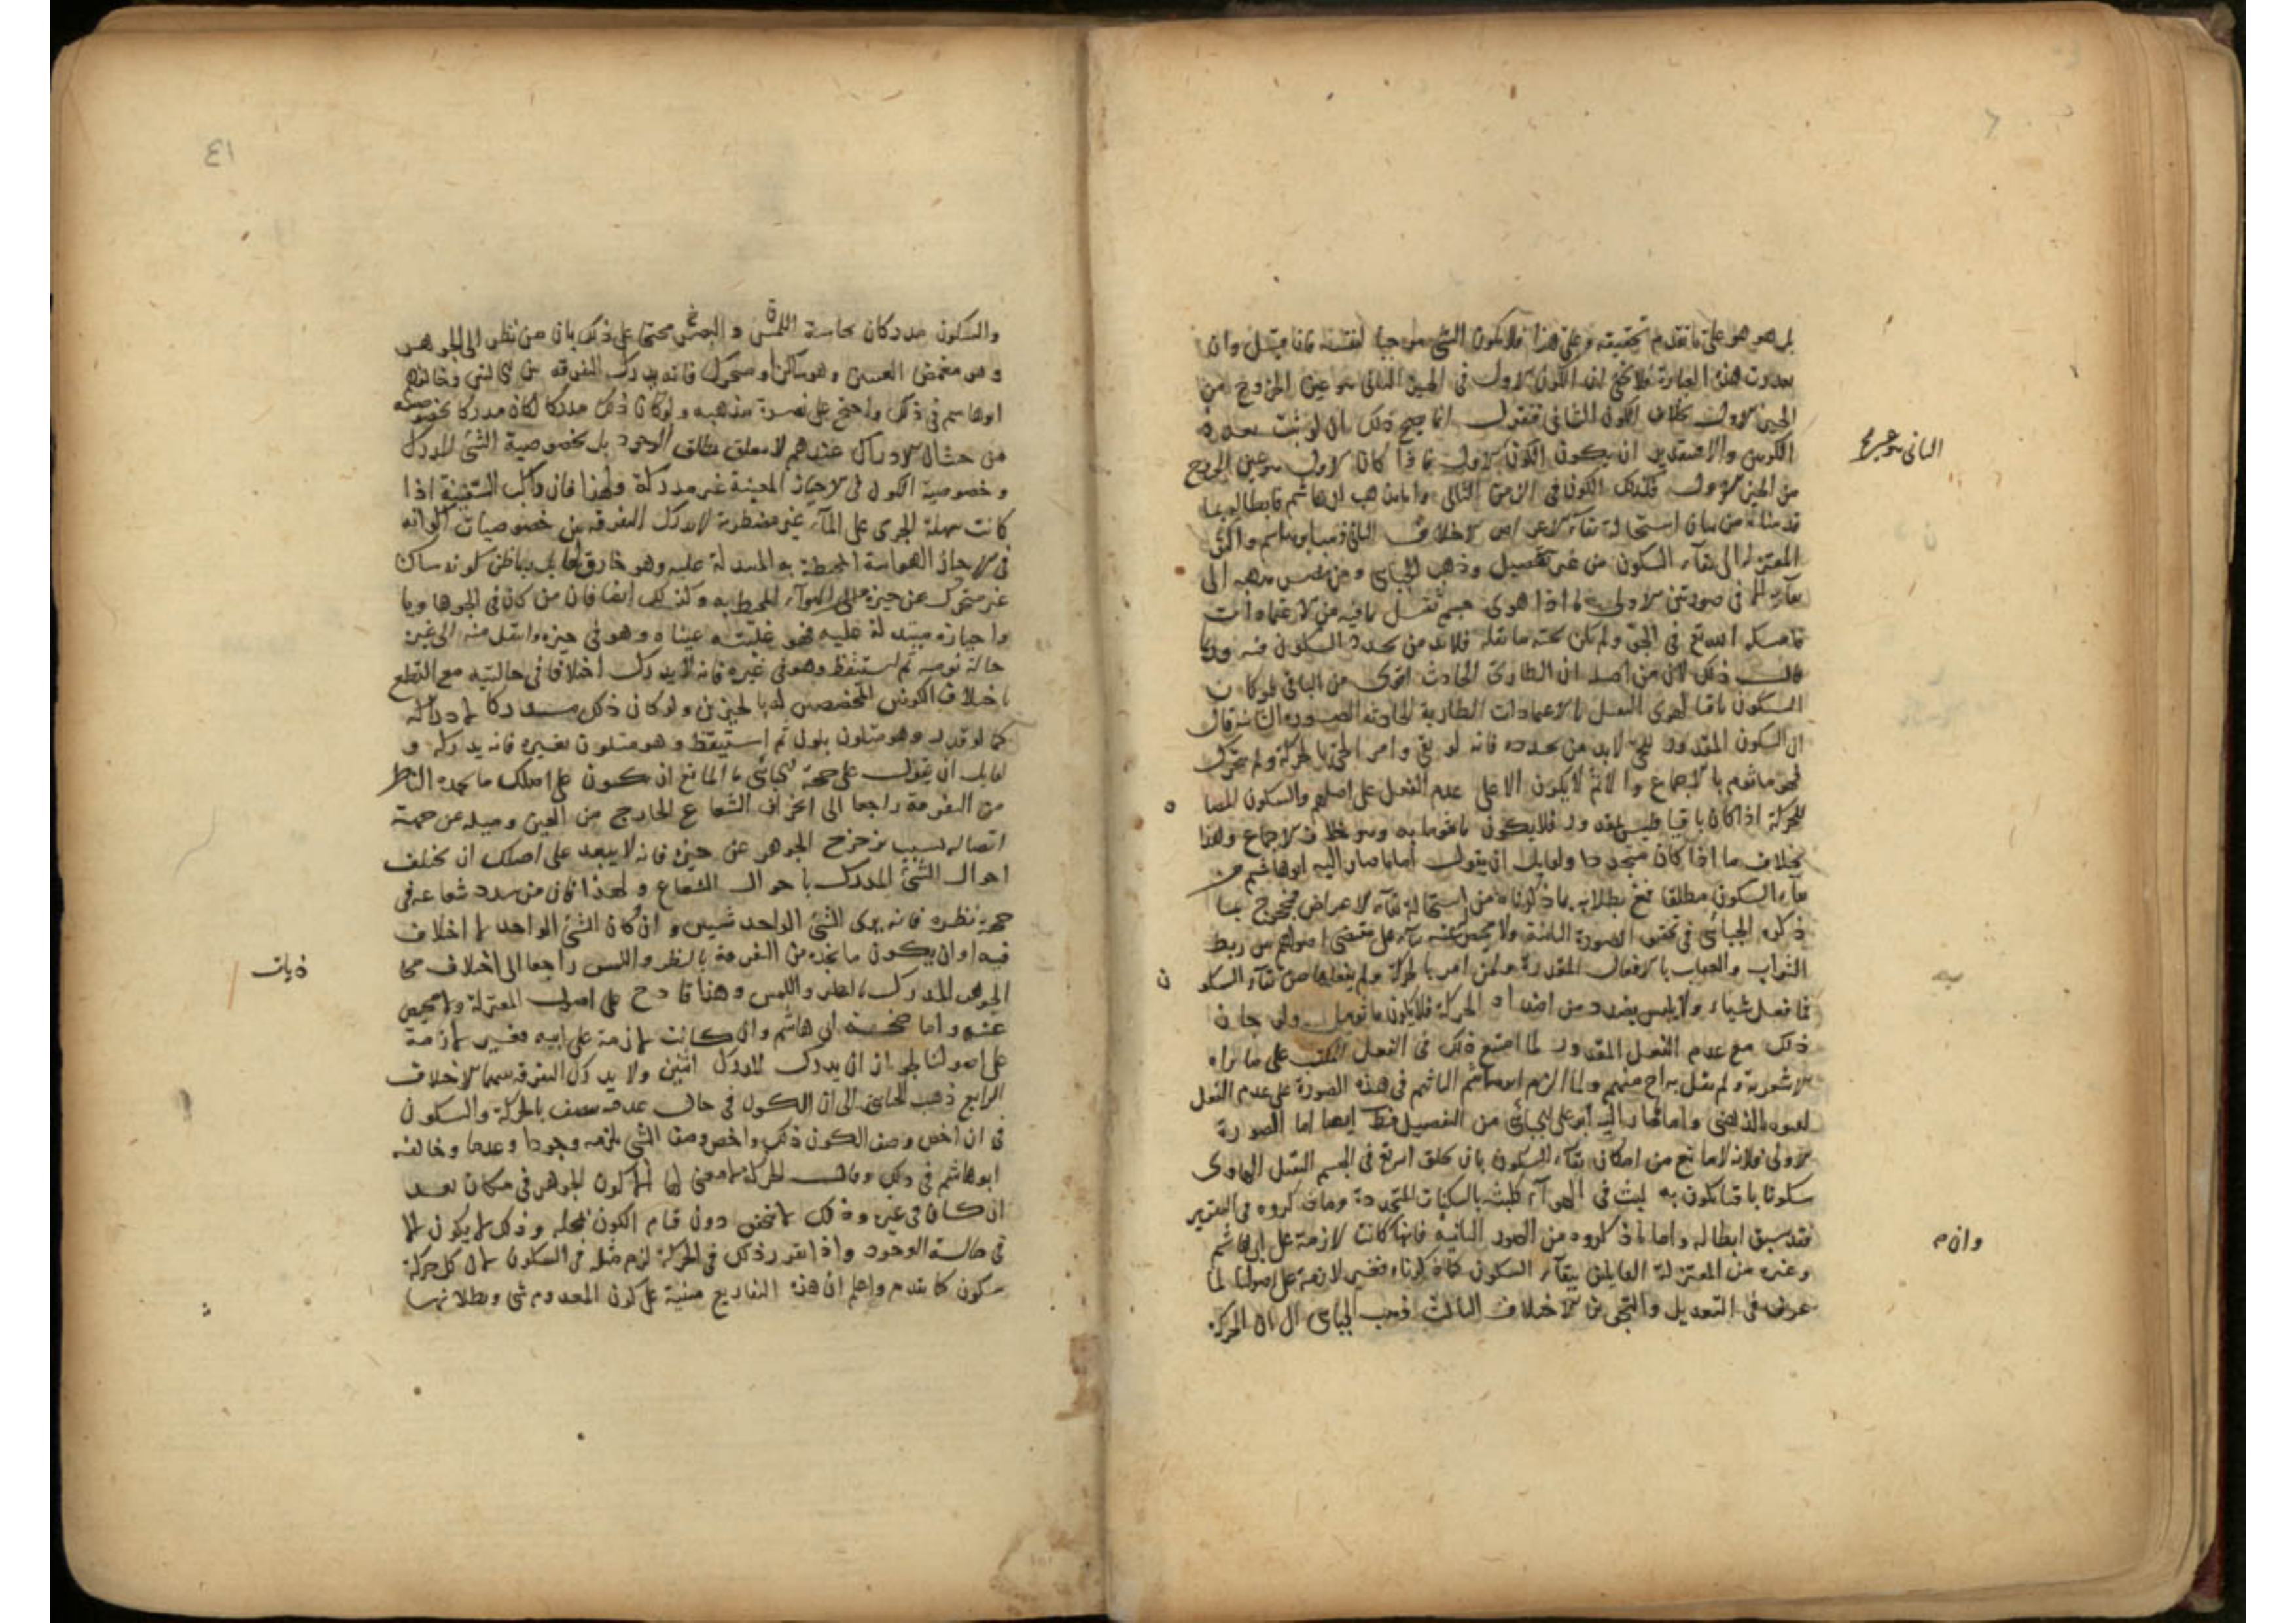 بل هو هو على ما تقدم تحقيقه وعلى هذا فلا يكون الشئ موجبا لنفسه فاما قيل وان
هذه العبارة فلا يخفى ان الكون الاول فى الحيز الثانى هو عين الخروج من
الحيز الاول بخلاف الكون الثانى فنقول انما يصح ذلك ان لو ثبت
الكونين والا فبتقدير ان يكون الكون الاول فاذا كان الاول هو عين الخروج
الثانى هو عين
من الحيز الاول فكذلك الكون فى الزمن الثانى واما مذهب ابى هاشم فابطاله بما
قدمناه من بيان استحالة بقاء الاعراض الاختلاف الثانى ابو هاشم واكثر
المعتزلة الى بقاء السكون من غير تفصيل وذهب الجبائى الى
بقائه الا فى صورتين الاولى ما اذا هوى جسم ثقيل بما فيه من الاعتمادات
فامسكه الله تع فى الجو ولم يكن تحته ما يقله فلا بد من تجدد السكون فيه
قال ذلك لان من اصله ان الطارئ الحادث اقوى من الباقى فلو كان
السكون باقيا لهوى الثقيل بالاعتمادات الطارية الحادثة الصورة الثانية قال
ان السكون المقدور للحى لا بد من تجدده فانه لو بقى وامر الحى بالحركة ولم يتحرك
فهو ماثوم بالاجماع والاثم لا يكون الا على عدم الفعل على اصلهم والسكون المضاد
للحركة اذا كان باقيا فليس بمقدور فلا يكون ماثوما به وهو خلاف الاجماع وهذا
بخلاف ما اذا كان متجددا ولقايل ان يقول اما ما صار اليه ابو هاشم من
بقاء السكون مطلقا فمع بطلانه بما ذكرناه من استحالة بقاء الاعراض فمحجوج بما
ذكره الجبائى فى تحقيق الصورة الثانية ولا محيص عنه على مقتضى اصولهم من ربط
الثواب والعقاب بالافعال المقدورة ولمن امر بالحركة ولم يفعلها مع بقاء السكون
فما فعل شياء ولا تلبس بضد من اضداد الحركة فلا يكون ولو جاز
ذلك مع عدم الفعل المقدور لما امتنع ذلك فى الفعل على ما يراه
الاشعرية ولم يقل به احد منهم ولما الزم ابو هاشم الماثم فى هذه الصورة على عدم الفعل
لقبوه بالذهنى واما ما صار اليه ابو على الجبائى من التفصيل ايضا اما الصورة
الاولى فلانه لا مانع من امكان بقاء السكون بان يخلق الله تع فى الجسم الثقيل الهاوى
سكونا باقيا يكون به لبثه فى الهواء كلبثه بالسكنات المتجددة وما ذكروه فى التقرير
فقد سبق ابطاله واما ما ذكروه من الصورة الثانية فانها كانت لازمة على ابى هاشم
وان
وغيره من المعتزلة القايلين ببقاء السكون كما ذكرناه فغير لازمة على اصولنا لما
عرف فى التعديل والتجوير الاختلاف الثالث ذهب الجبائى الى ان الحركة
٤١
والسكون مدركان بحاسة اللمس و البصر محتجا على ذلك بان من نظر الى الجوهر
وهو مغمض العينين وهو ساكن او متحرك فانه يدرك التفرقة بين الحالتين وخالفهم
ابو هاشم فى ذلك واحتج على نصرة مذهبه ولو كان ذلك مدركا لكان مدركا بخصوصيته
من حيث ان الادراك عندهم لا يتعلق بمطلق الوجود بل بخصوصية الشئ المدرك
وخصوصية الكون فى الاحياز المعينة غير مدركة ولهذا فان راكب السفينة اذا
كانت سهلة الجرى على الماء غير مضطربة لا يدرك التفرقة بين خصوصيات اكوانه
فى الاحياز الهوائية المحيطة به المتبدلة عليه وهو خارق لها
غير متحرك عن حيزه الهواء المحيط به وكذلك ايضا فان من كان فى الجو هاويا
واحيازه متبدلة عليه فلو غلبته عيناه وهو فى حيز وانتقل منه الى غيره
حالة نومه ثم استيقظ وهو فى غيره فانه لا يدرك اختلافا فى حالتيه مع القطع
باختلاف الكونين المخصصين له بالحيزين ولو كان ذلك مدركا لادركه
كما لو رقد وهو متلون بلون ثم استيقظ وهو متلون بغيره فانه يدركه و
لقايل ان يقول على حجة الجبائى ما المانع ان يكون على اصلك ما يجده الناظر
من التفرقة راجعا الى انحراف الشعاع الخارج من العين وميله عن جهة
اتصاله بسبب تزحزح الجوهر عن حيزه فانه لا يبعد على اصلك ان يختلف
احوال الشئ المدرك باحوال الشعاع ولهذا فان من سدد شعاعه فى
جهة نظره فانه يرى الشئ الواحد شيئين وان كان الشئ الواحد لا اختلاف
فيه او ان يكون ما نجده من التفرقة بالنظر واللمس راجعا الى اختلاف محا
ذيات
الجوهر المدرك بالنظر واللمس وهذا قادح على اصول المعتزلة ولا محيص
عنه واما حجة ابى هاشم وان كانت لازمة على ابيه فغير لازمة
على اصولنا لجواز ان يدرك المدرك اثنين ولا يدرك التفرقة بينهما الاختلاف
الرابع ذهب الجبائى الى ان الكون فى حال عدمه يتصف بالحركة والسكون
فى ان اخص وصف الكون ذلك واخص وصف الشئ يلزمه وجودا وعدما وخالفه
ابو هاشم فى ذلك وقال الحركة لا معنى لها الا كون الجوهر فى مكان بعد
ان كان فى غيره وذلك لا يتحقق دون قيام الكون بمحله وذلك لا يكون الا
فى حالة الوجود واذا تقرر ذلك فى الحركة لزم مثله فى السكون لان كل حركة
سكون كما تقدم واعلم ان هذه التفاريع مبنية على كون المعدوم شئ وبطلانها